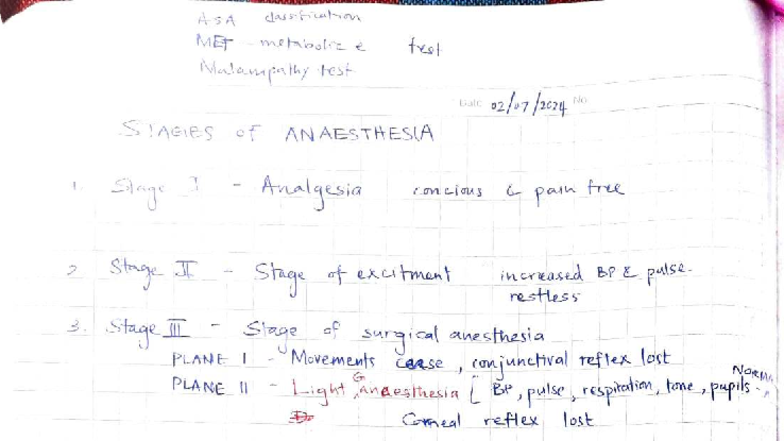 ASA classification
MET - metabolic e test
Malampathy test
Date 02/07/2024 No
STAGES of ANAESTHESIA
1. Stage I - Analgesia concious & pain free
2. Stage II - Stage of excitment increased BP & pulse.
restless
3. Stage III - Stage of surgical anesthesia
PLANE I - Movements cease, conjunctival reflex lost
PLANE II - Light G Anaesthesia [ BP, pulse, respiration, tone, pupils -
Corneal reflex lost